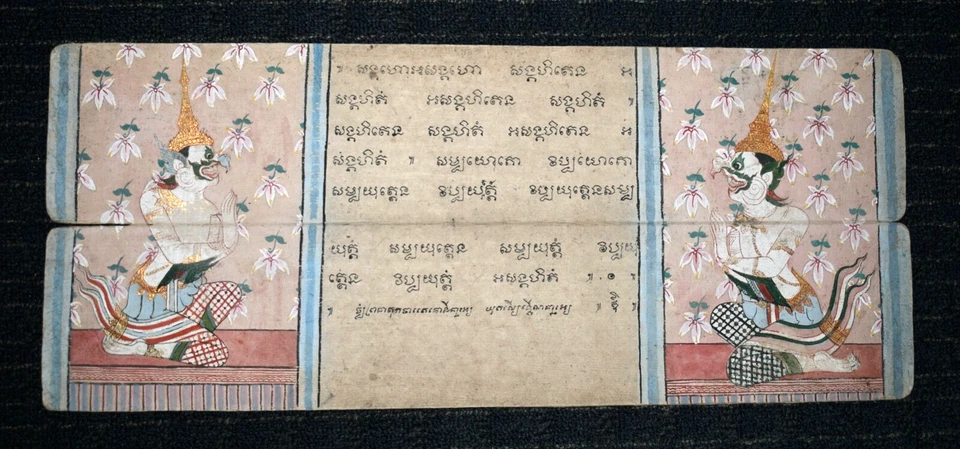 ៕ សង្គហោអសង្គហោ សង្គហិតេន អ
សង្គហិតំ អសង្គហិតេន សង្គហិតំ ៕
សង្គហិតេន សង្គហិតំ អសង្គហិតេន អ
សង្គហិតំ ៕ សម្បយោគោ វិប្បយោគោ
សម្បយុត្តេន វិប្បយុត្តំ វិប្បយុត្តេនសម្ប
យុត្តំ សម្បយុត្តេន សម្បយុត្តំ វិប្បយុ
ត្តេន វិប្បយុត្តំ អសង្គហិតំ ៕